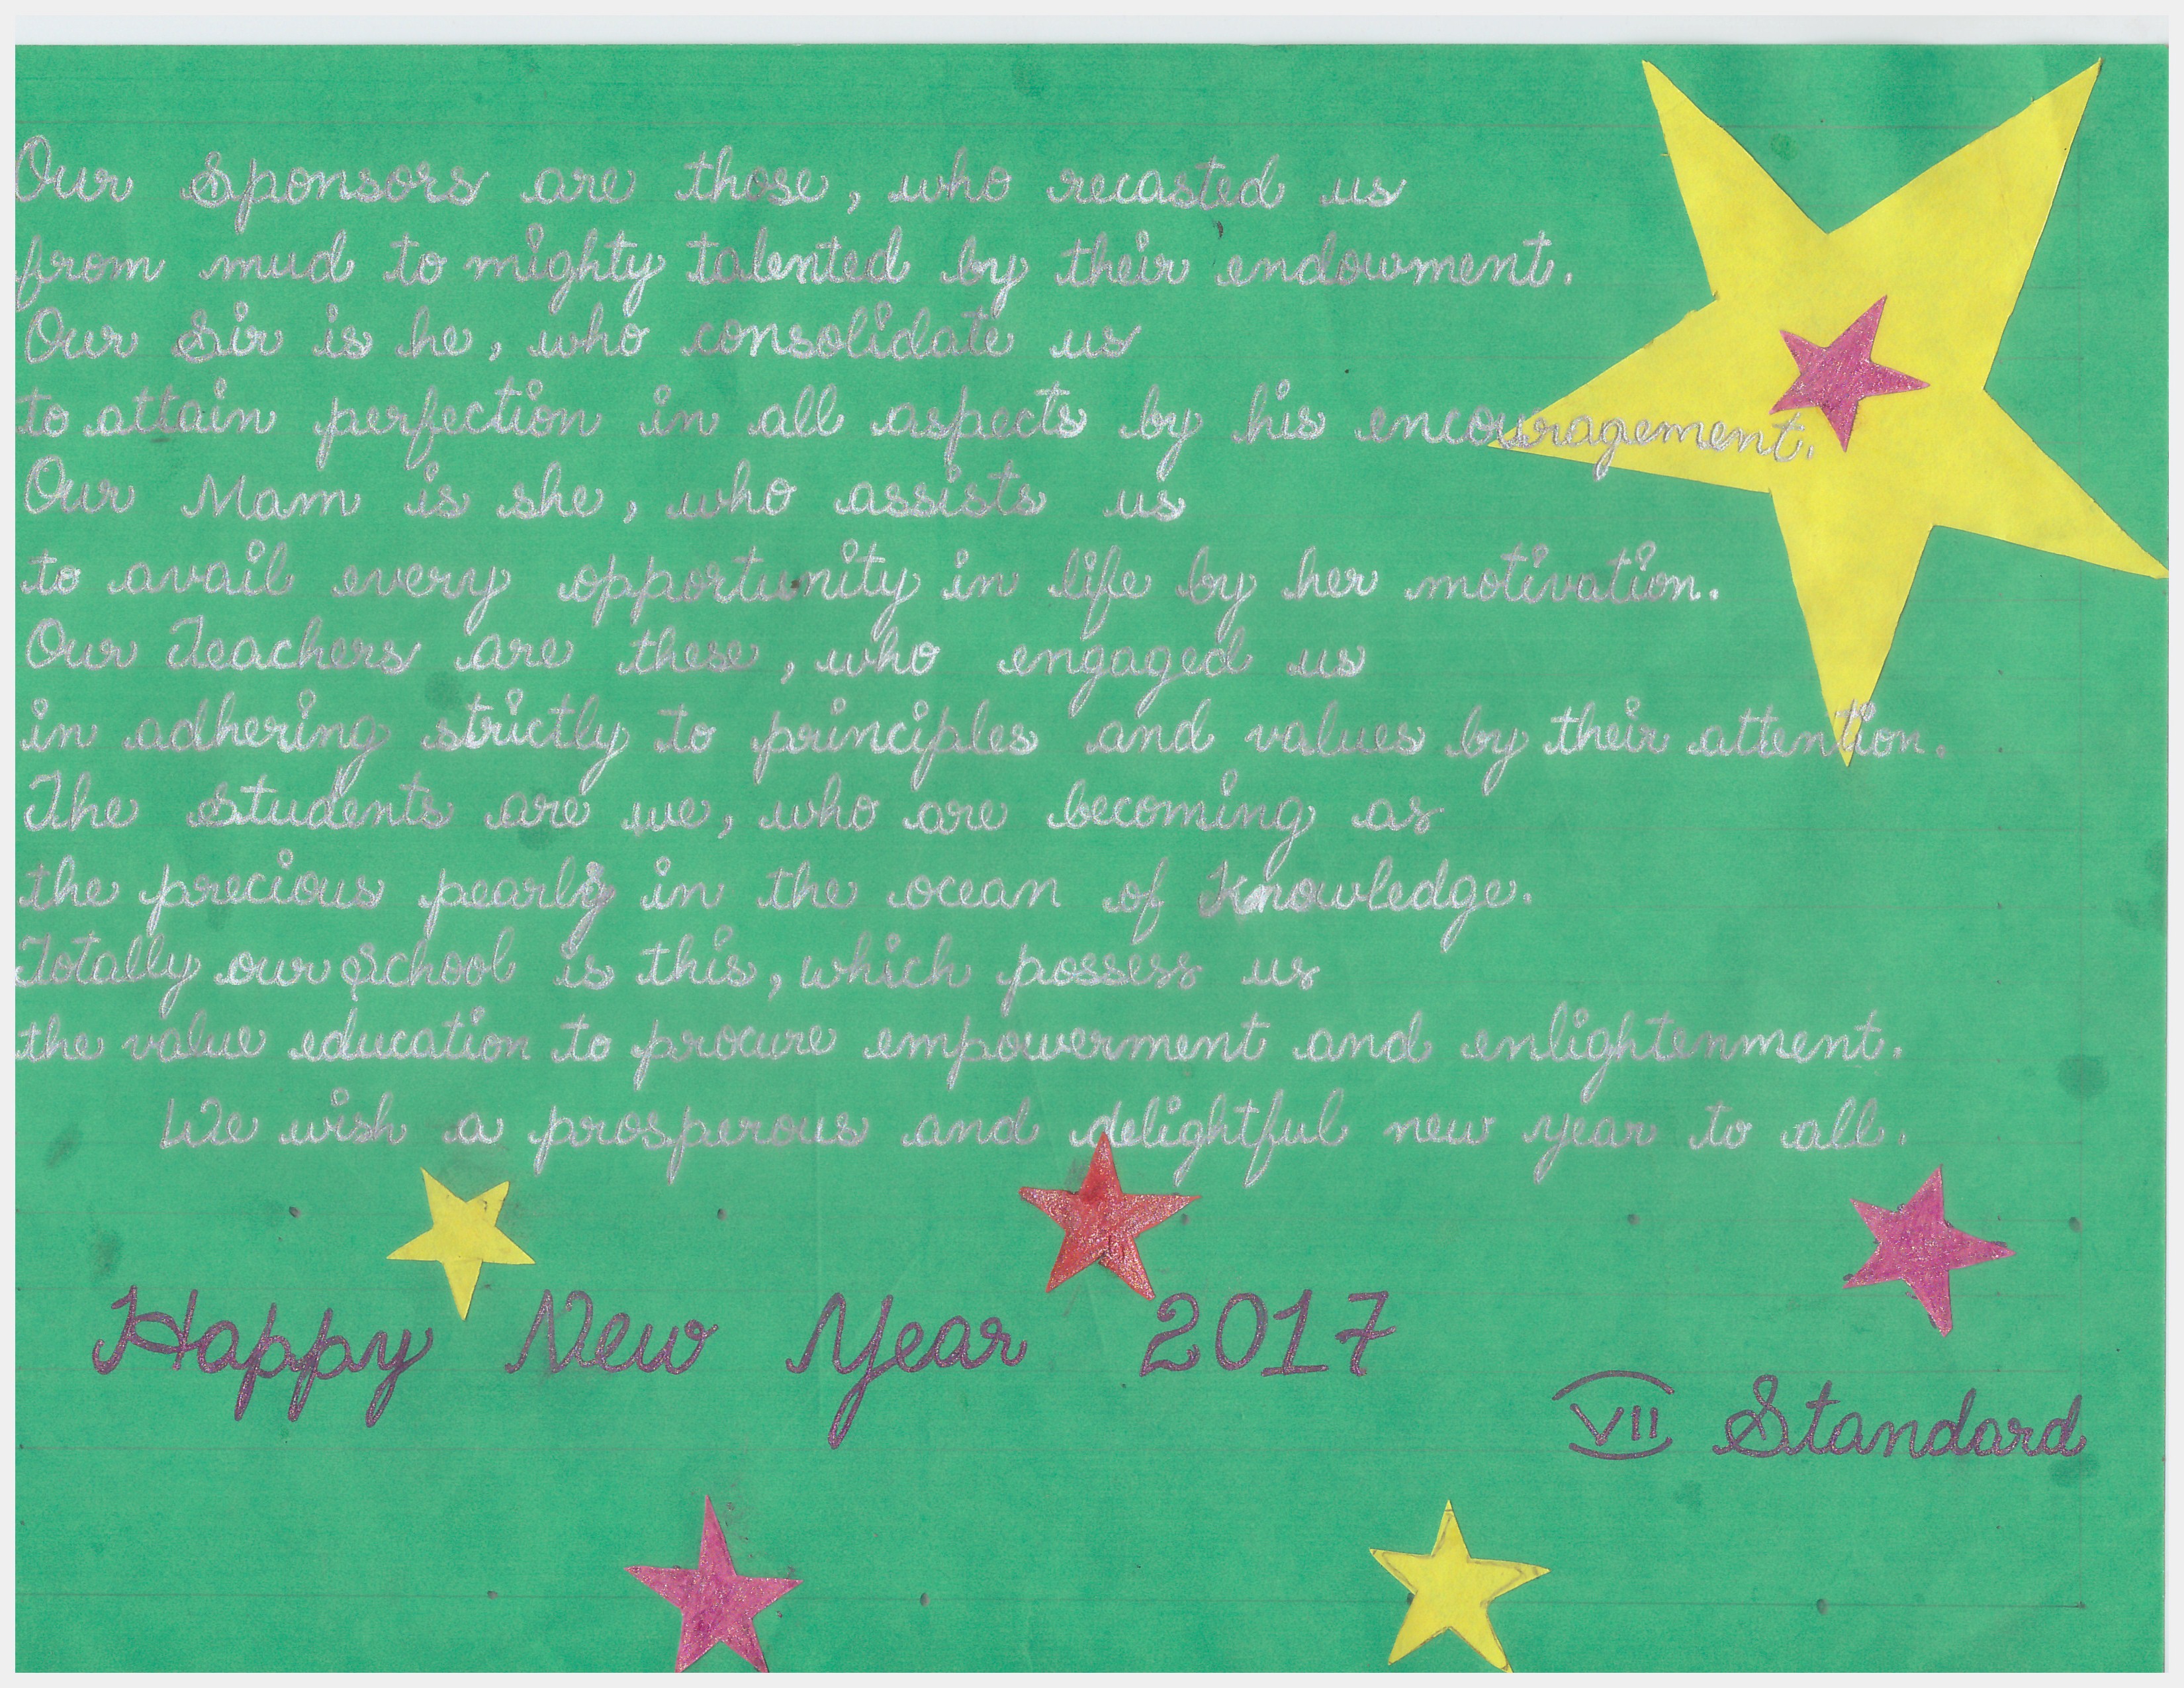 Our Sponsors are those, who recasted us
from mud to mighty talented by their endowment.
Our Sir is he, who consolidate us
to attain perfection in all aspects by his encouragement.
Our Mam is she, who assists us
to avail every opportunity in life by her motivation.
Our Teachers are these, who engaged us
in adhering strictly to principles and values by their attention.
The students are we, who are becoming as
the precious pearls in the ocean of Knowledge.
Totally our School is this, which possess us
the value education to procure empowerment and enlightenment.
We wish a prosperous and delightful new year to all.
Happy New Year 2017
VII Standard